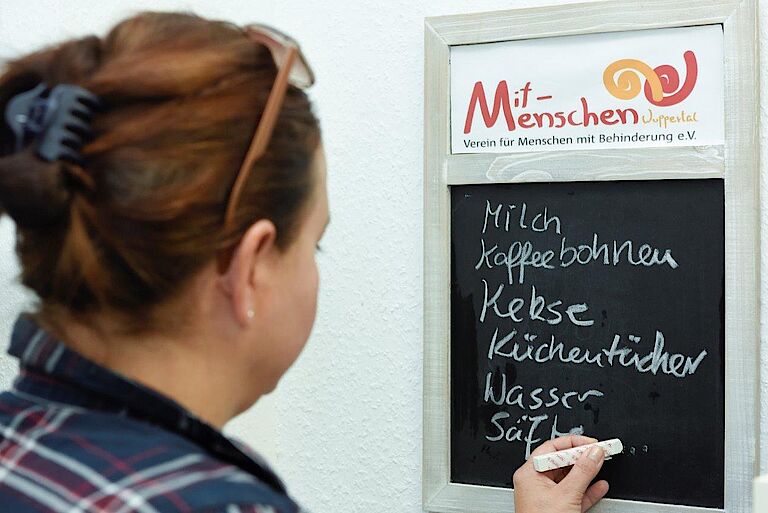 Mit-
Menschen Wuppertal
Verein für Menschen mit Behinderung e.V.
Milch
Kaffeebohnen
Kekse
Küchentücher
Wasser
Säfte ...